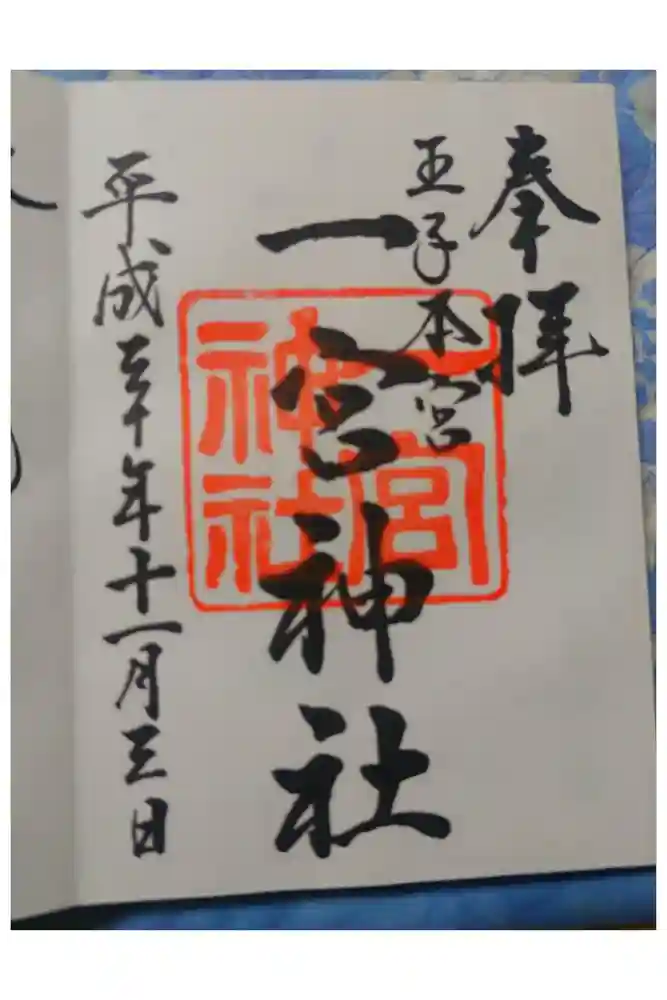 奉拝
王子本宮
一宮神社
一宮
神社
平成三十年十一月三日